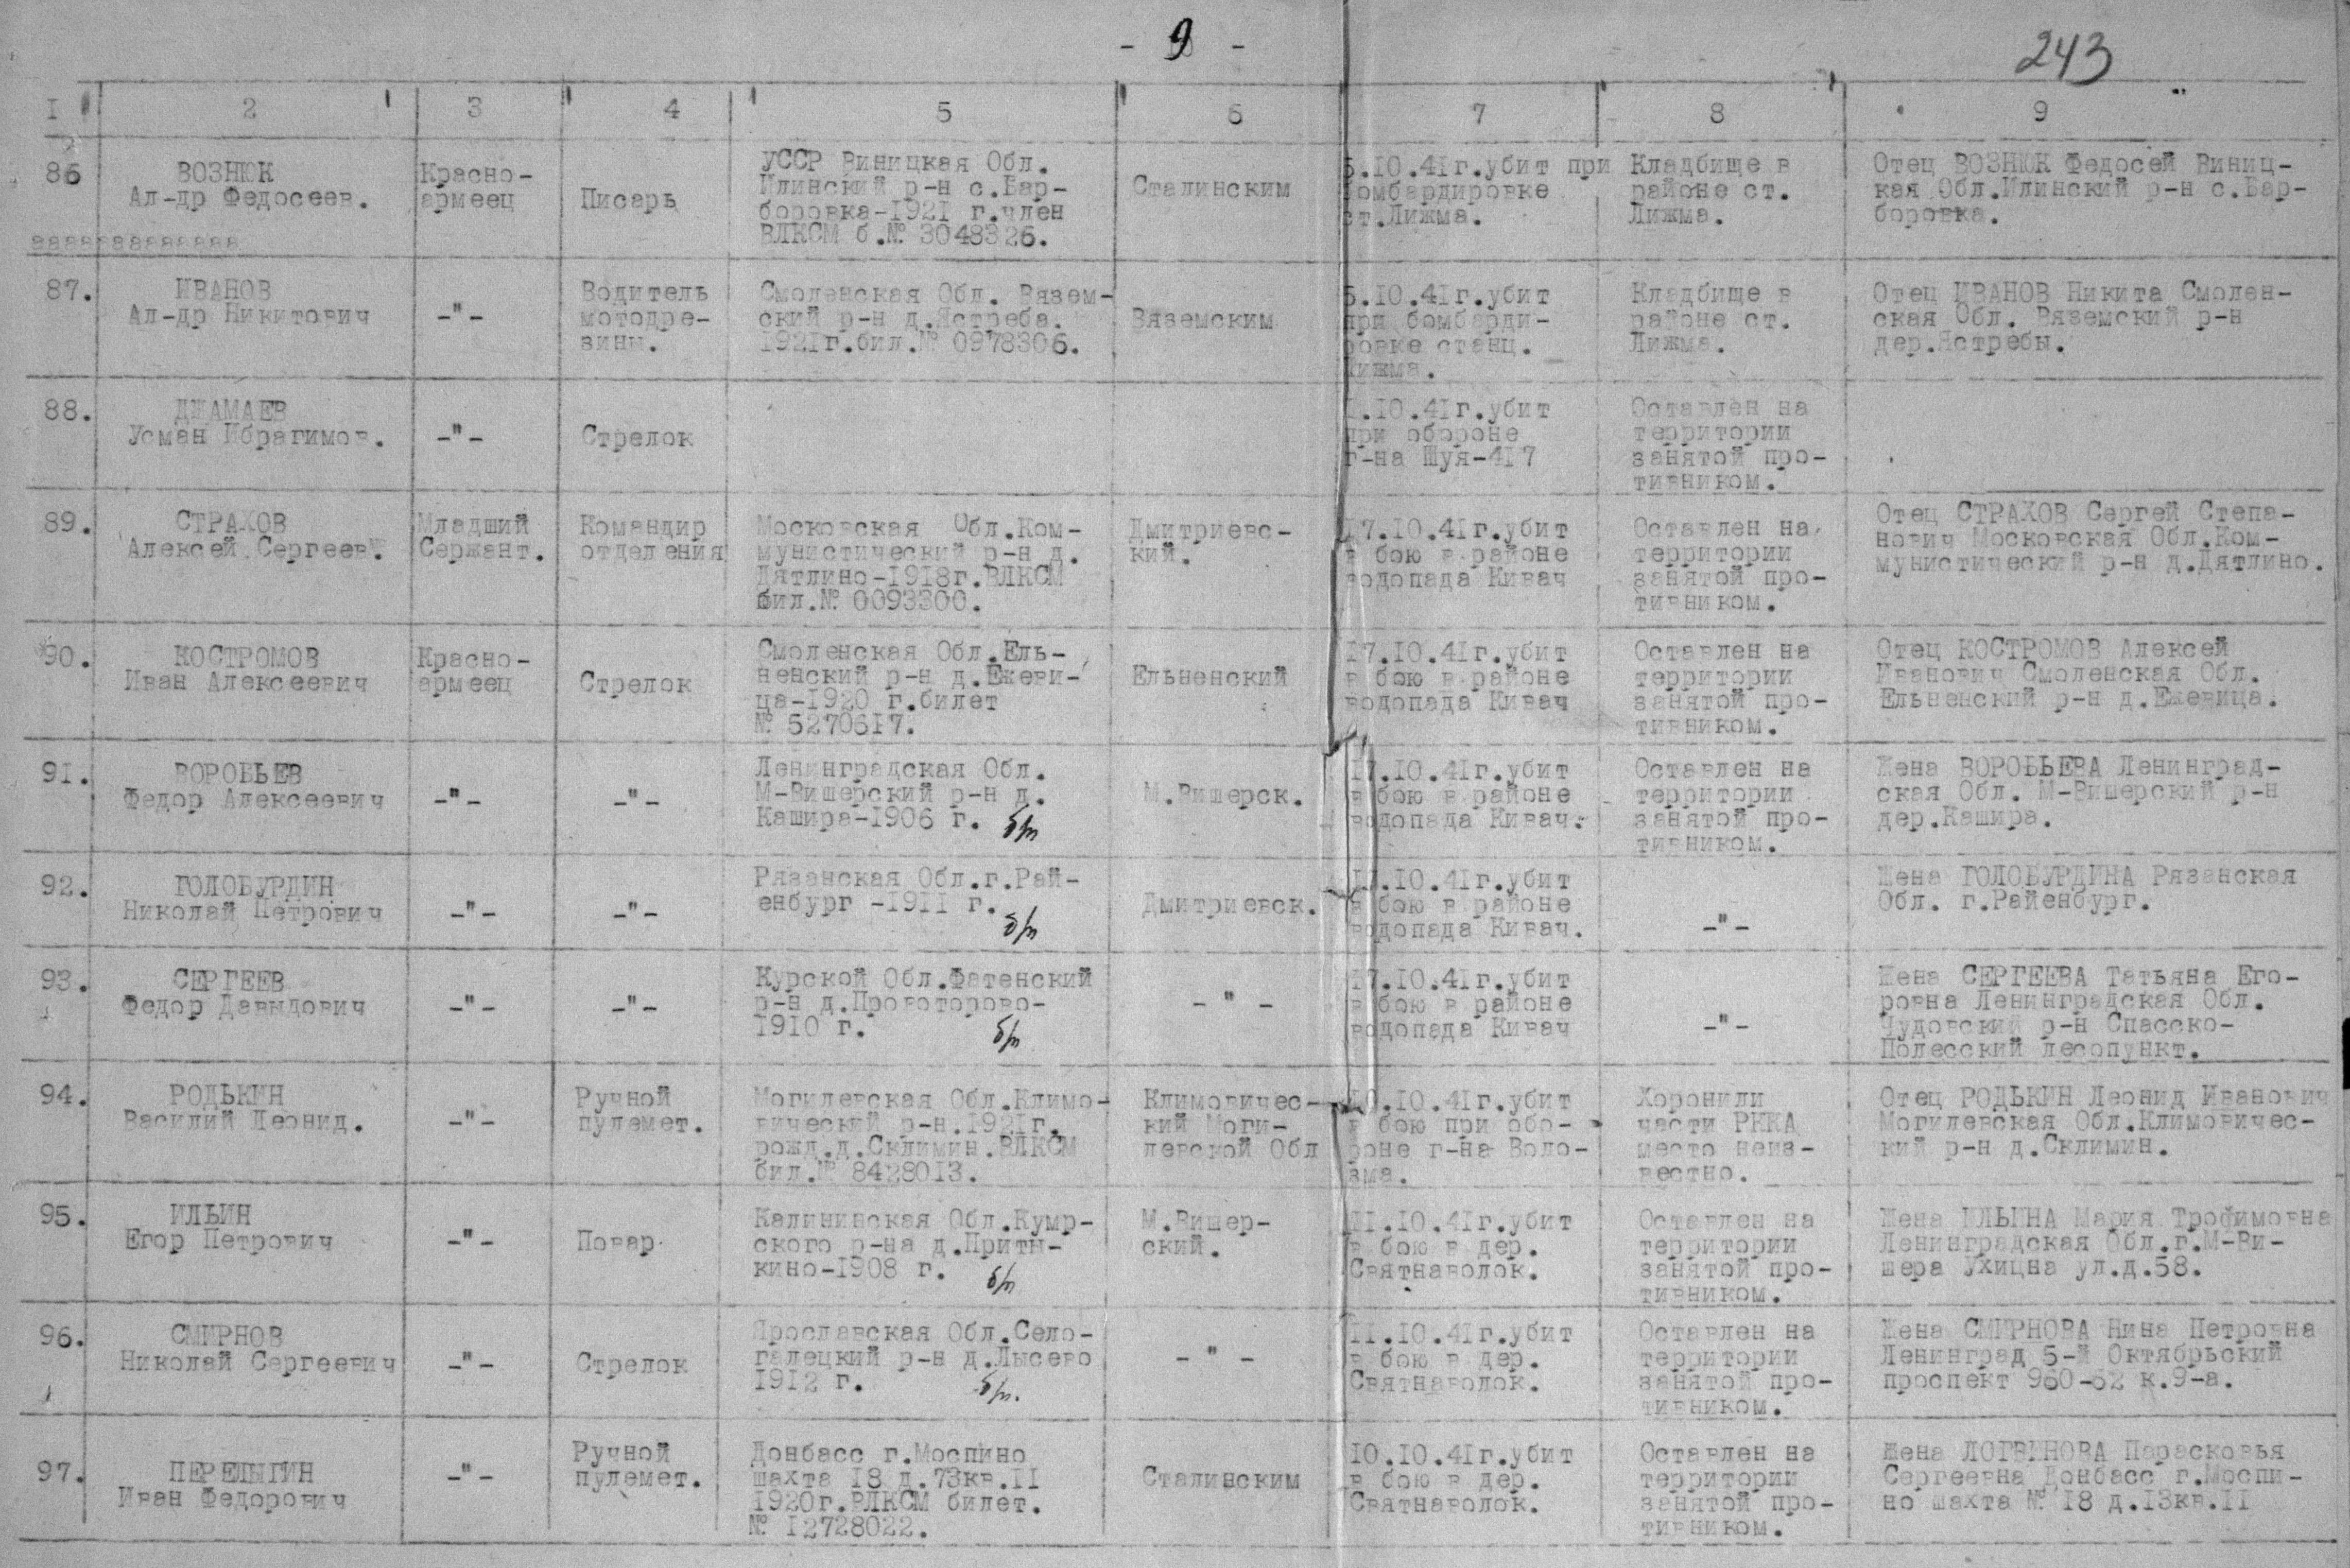 - 9 -
243
I 2 3 4 5 6 7 8 9
86
ВОЗНЮК
Ал-др Федосеев.
Красно-
армеец
Писарь
УССР Виницкая Обл.
Илинский р-н с.Бар-
боровка-1921 г.член
ВЛКСМ б.№ 3048326.
Сталинским
5.10.41г.убит при
бомбардировке
ст.Лижма.
Кладбище в
районе ст.
Лижма.
Отец ВОЗНЮК Федосей Виниц-
кая Обл.Илинский р-н с.Бар-
боровка.
87.
ИВАНОВ
Ал-др Никитович
-"-
Водитель
мотодре-
зины.
Смоленская Обл. Вязем-
ский р-н д.Ястреба.
1921г.бил.№ 0978306.
Вяземским
5.10.41г.убит
при бомбарди-
ровке станц.
Лижма.
Кладбище в
районе ст.
Лижма.
Отец ИВАНОВ Никита Смолен-
ская Обл. Вяземский р-н
дер.Ястребы.
88.
ДЖАМАЕВ
Усман Ибрагимов.
-"-
Стрелок
1.10.41г.убит
при обороне
г-на Шуя-417
Оставлен на
территории
занятой про-
тивником.
89.
СТРАХОВ
Алексей Сергеев.
Младший
Сержант.
Командир
отделения
Московская Обл.Ком-
мунистический р-н д.
Дятлино-1918г.ВЛКСМ
бил.№ 0093300.
Дмитриевс-
кий.
17.10.41г.убит
в бою в районе
водопада Кивач
Оставлен на
территории
занятой про-
тивником.
Отец СТРАХОВ Сергей Степа-
нович Московская Обл.Ком-
мунистический р-н д.Дятлино.
90.
КОСТРОМОВ
Иван Алексеевич
Красно-
армеец
Стрелок
Смоленская Обл.Ель-
ненский р-н д.Ежеви-
ца-1920 г.билет
№ 5270617.
Ельненский
17.10.41г.убит
в бою в районе
водопада Кивач
Оставлен на
территории
занятой про-
тивником.
Отец КОСТРОМОВ Алексей
Иванович Смоленская Обл.
Ельненский р-н д.Ежевица.
91.
ВОРОБЬЕВ
Федор Алексеевич
-"-
-"-
Ленинградская Обл.
М-Вишерский р-н д.
Кашира-1906 г. б/п
М.Вишерск.
17.10.41г.убит
в бою в районе
водопада Кивач.
Оставлен на
территории
занятой про-
тивником.
Жена ВОРОБЬЕВА Ленинград-
ская Обл. М-Вишерский р-н
дер.Кашира.
92.
ГОЛОБУРДИН
Николай Петрович
-"-
-"-
Рязанская Обл.г.Рай-
енбург -1911 г.
б/п
Дмитриевск.
17.10.41г.убит
в бою в районе
водопада Кивач.
-"-
Жена ГОЛОБУРДИНА Рязанская
Обл. г.Райенбург.
93.
СЕРГЕЕВ
Федор Давыдович
-"-
-"-
Курской Обл.Фатенский
р-н д.Провоторово-
1910 г. б/п
- " -
17.10.41г.убит
в бою в районе
водопада Кивач
-"-
Жена СЕРГЕЕВА Татьяна Его-
ровна Ленинградская Обл.
Чудовский р-н Спасско-
Полесский лесопункт.
94.
РОДЬКИН
Василий Леонид.
-"-
Ручной
пулемет.
Могилевская Обл.Климо-
вический р-н.1921г.
рожд.д.Склимин.ВЛКСМ
бил.№ 8428013.
Климовичес-
кий Моги-
левской Обл
10.10.41г.убит
в бою при обо-
роне г-на Воло-
зма.
Хоронили
части РККА
место неиз-
вестно.
Отец РОДЬКИН Леонид Иванович
Могилевская Обл.Климовичес-
кий р-н д.Склимин.
95.
ИЛЬИН
Егор Петрович
-"-
Повар
Калининская Обл.Кумр-
ского р-на д.Приты-
кино-1908 г. б/п
М.Вишер-
ский.
11.10.41г.убит
в бою в дер.
Святнаволок.
Оставлен на
территории
занятой про-
тивником.
Жена ИЛЬИНА Мария Трофимовна
Ленинградская Обл.г.М-Ви-
шера Ухицна ул.д.58.
96.
СМИРНОВ
Николай Сергеевич
-"-
Стрелок
Ярославская Обл.Село-
галецкий р-н д.Лысево
1912 г. б/п.
- " -
11.10.41г.убит
в бою в дер.
Святнаволок.
Оставлен на
территории
занятой про-
тивником.
Жена СМИРНОВА Нина Петровна
Ленинград 5-й Октябрьский
проспект 960-62 к.9-а.
97.
ПЕРЕЛЫГИН
Иван Федорович
-"-
Ручной
пулемет.
Донбасс г.Моспино
шахта 18 д.73кв.11
1920г.ВЛКСМ билет.
№ 12728022.
Сталинским
10.10.41г.убит
в бою в дер.
Святнаволок.
Оставлен на
территории
занятой про-
тивником.
Жена ЛОГВИНОВА Парасковья
Сергеевна Донбасс г.Моспи-
но шахта № 18 д.13кв.11